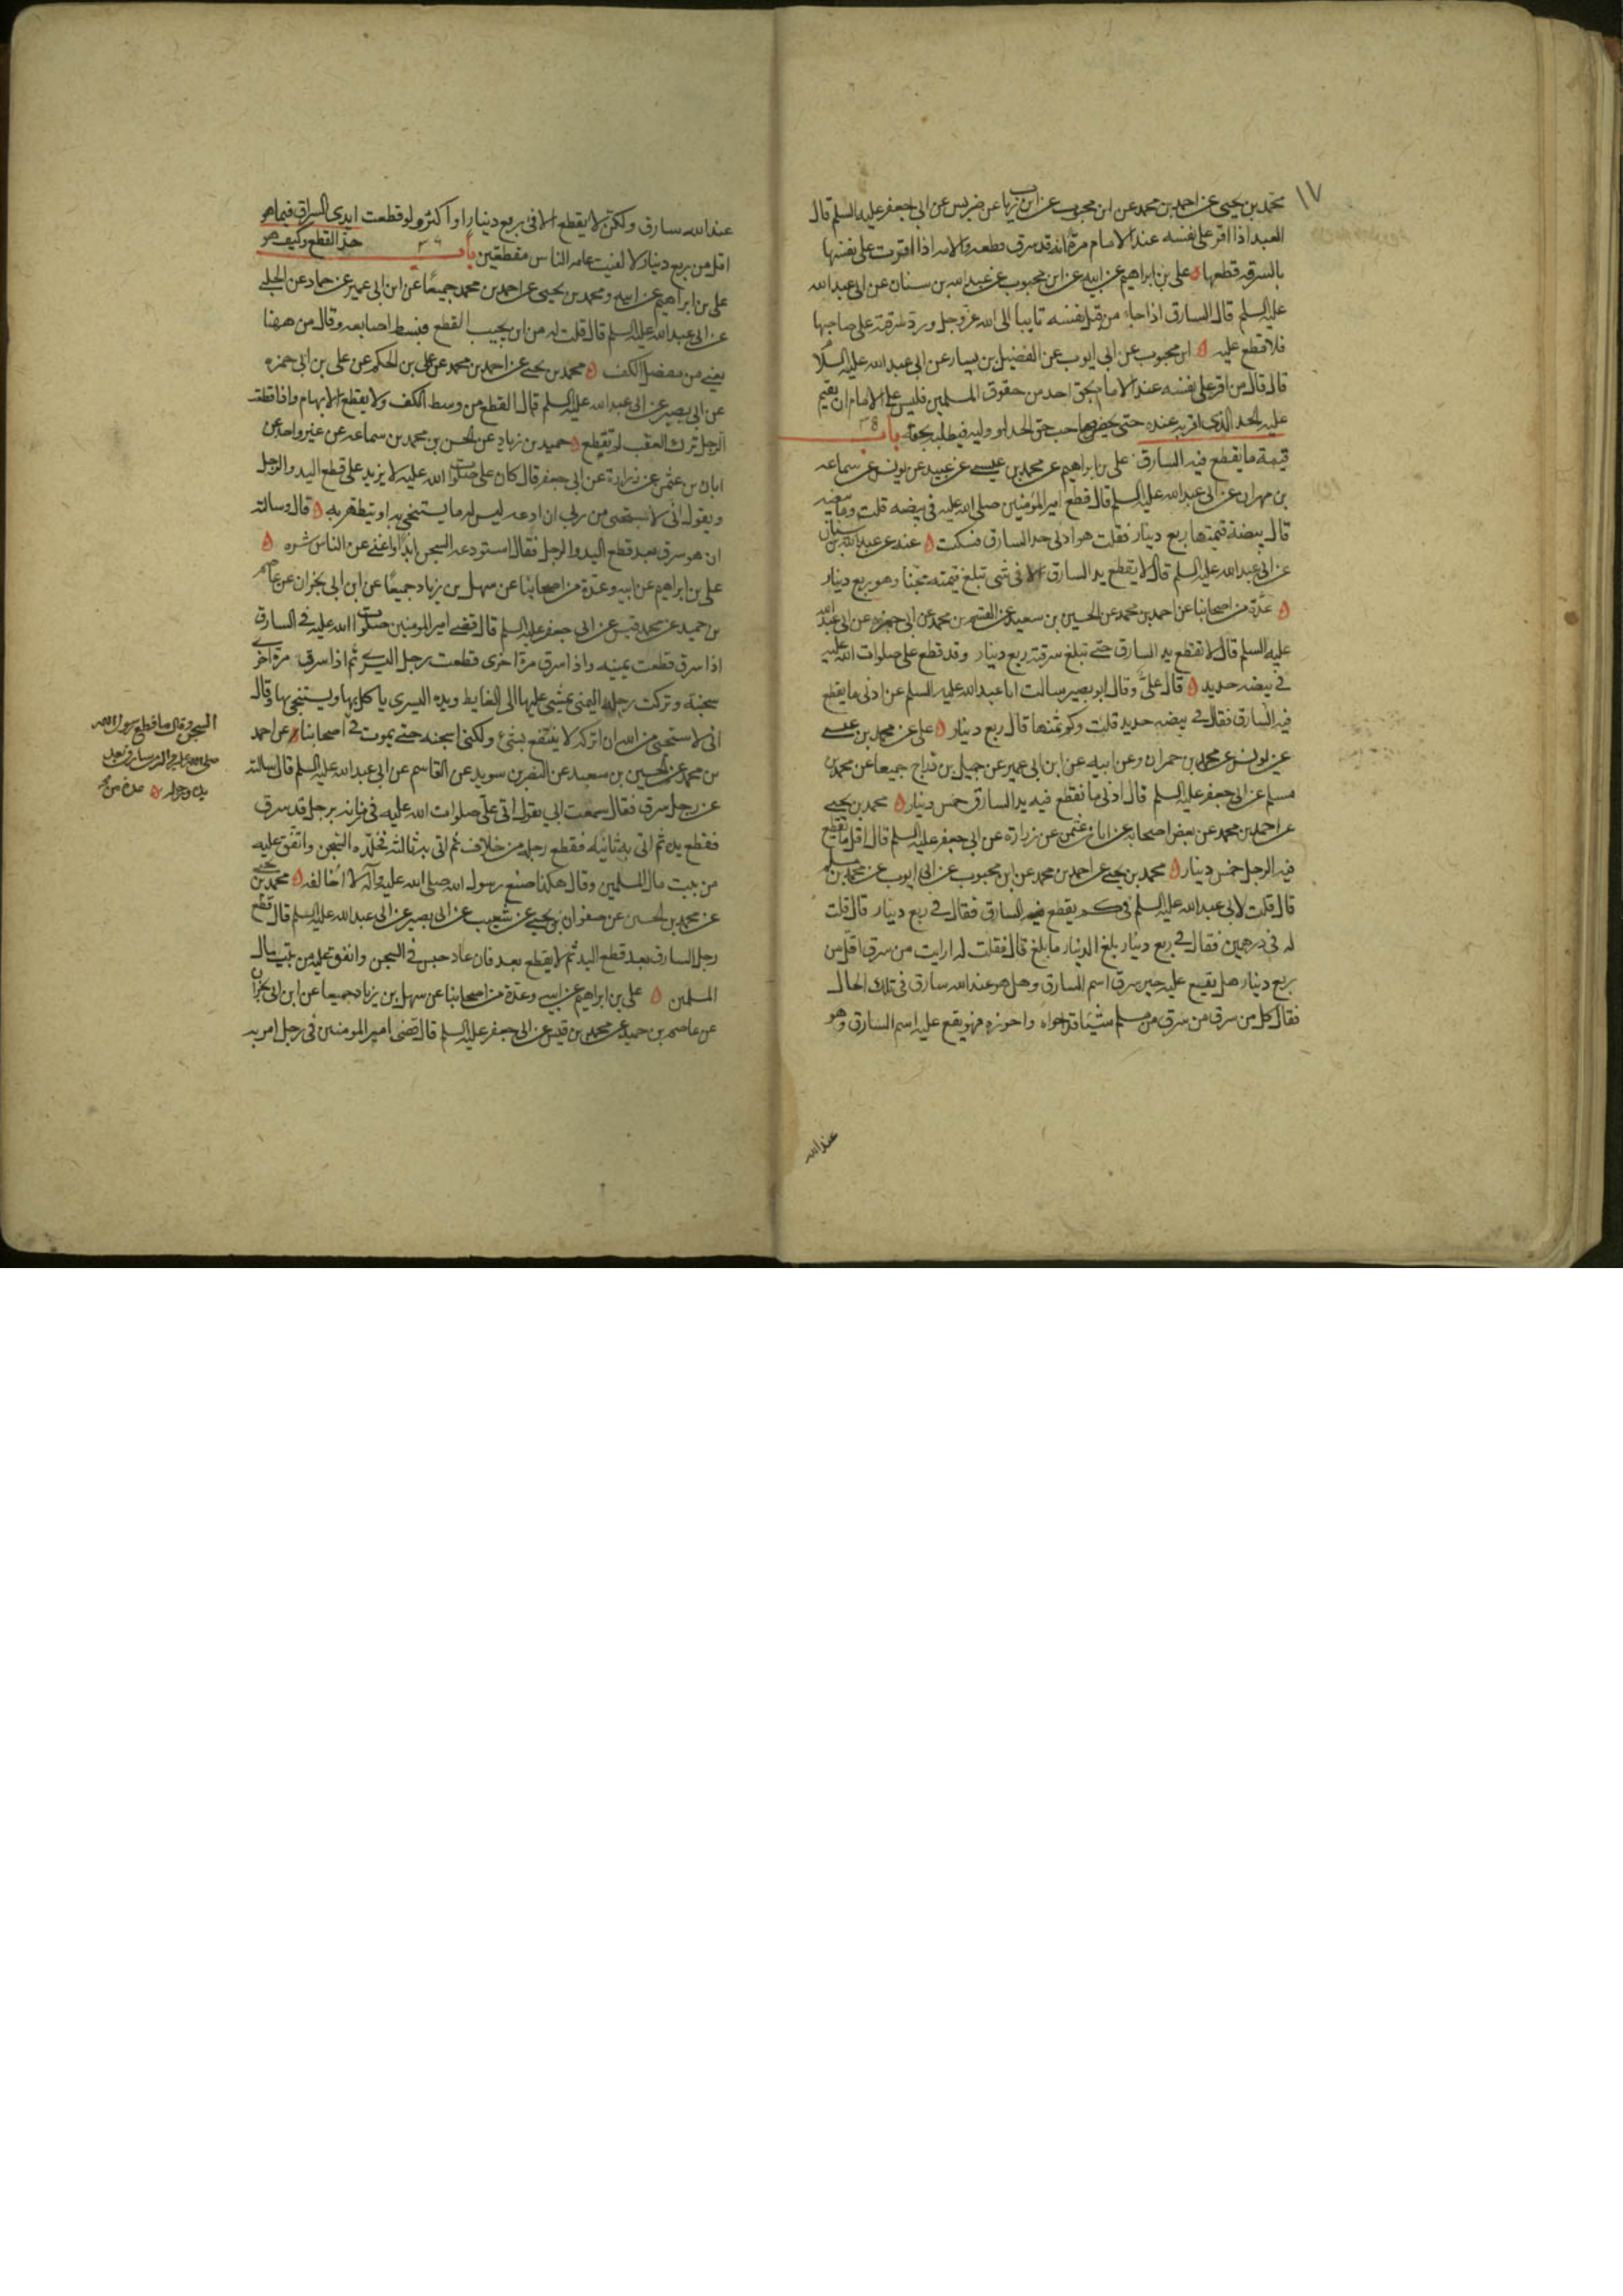 ١٧
محمد بن يحيى عن احمد بن محمد عن ابن محبوب عن ابن رياب عن ضريس عن ابى جعفر عليه السلم قال
العبد اذا اقر على نفسه عند الامام مرة انه قد سرق قطعه والامه اذا اقرت على نفسها
بالسرقه قطعها ه على بن ابراهيم عن ابيه عن ابن محبوب عن عبد الله بن سنان عن ابى عبد الله
عليه السلم قال السارق اذا جاء من قبل نفسه تايبا الى الله عز وجل ورد سرقته على صاحبها
فلا قطع عليه ه ابن محبوب عن ابى ايوب عن الفضيل بن يسار عن ابى عبد الله عليه السلا
قال قال من اقر على نفسه عند الامام بحق احد من حقوق المسلمين فليس على الامام ان يقيم
عليه الحد الذى اقر به عنده حتى يحضر صاحب حق الحد او وليه فيطلبه بحقه باب ٣٨
قيمة ما يقطع فيه السارق على بن ابراهيم عن محمد بن عيسى عن عبيد عن يونس عن سماعه
بن مهران عن ابى عبد الله عليه السلم قال قطع امير المؤمنين صلى الله عليه فى بيضه قلت وما بيضه
قال بيضة قيمتها ربع دينار فقلت هو ادنى حد السارق فسكت ه عنه عن عبد الله بن سنان
عن ابى عبد الله عليه السلم قال لا يقطع يد السارق الا فى شى تبلغ قيمته مجنا وهو ربع دينار
ه عدة من اصحابنا عن احمد بن محمد عن الحسين بن سعيد عن القسم بن محمد عن ابى حمزه عن ابى عبد الله
عليه السلم قال لا تقطع يد السارق حتى تبلغ سرقته ربع دينار وقد قطع على صلوات الله عليه
فى بيضه حديد ه قال على وقال ابو بصير سالت ابا عبد الله عليه السلم عن ادنى ما يقطع
فيه السارق فقال فى بيضه حديد قلت وكم ثمنها قال ربع دينار ه على عن محمد بن عيسى
عن يونس عن محمد بن حمران وعن ابيه عن ابن ابى عمير عن جميل بن دراج جميعا عن محمد بن
مسلم عن ابى جعفر عليه السلم قال ادنى ما تقطع فيه يد السارق خمس دينار ه محمد بن يحيى
عن احمد بن محمد عن بعض اصحابه عن ابان بن عثمن عن زراره عن ابى جعفر عليه السلم قال اقل ما تقطع
فيه الرجل خمس دينار ه محمد بن يحيى عن احمد بن محمد عن ابن محبوب عن ابى ايوب عن محمد بن مسلم
قال قلت لابى عبد الله عليه السلم فى كم يقطع فيه السارق فقال فى ربع دينار قال قلت
له فى درهمين فقال فى ربع دينار بلغ الدينار ما بلغ قال فقلت له ارايت من سرق اقل من
ربع دينار هل يقع عليه حين سرق اسم السارق وهل هو عند الله سارق فى تلك الحال
فقال كل من سرق من سرق من مسلم شيئا قد حواه واحوزه فهو يقع عليه اسم السارق وهو
عند الله
عند الله سارق ولكن لا يقطع الا فى ربع دينار او اكثر ولو قطعت ايدى السراق فيما هو
اقل من ربع دينار لالفيت عامه الناس مقطعين باب ٣٩ حد القطع وكيف هو
على بن ابراهيم عن ابيه ومحمد بن يحيى عن احمد بن محمد جميعا عن ابن ابى عمير عن حماد عن الحلبى
عن ابى عبد الله عليه السلم قال قلت له من اين يجب القطع فبسط اصابعه وقال من ههنا
يعنى من مفصل الكف ه محمد بن يحيى عن احمد بن محمد عن على بن الحكم عن على بن ابى حمزه
عن ابى بصير عن ابى عبد الله عليه السلم قال القطع من وسط الكف ولا يقطع الابهام واذا قطعت
الرجل ترك العقب لم تقطع ه حميد بن زياد عن الحسن بن محمد بن سماعه عن غير واحد عن
ابان بن عثمن عن زرارة عن ابى جعفر قال كان على صلوات الله عليه لا يزيد على قطع اليد والرجل
ويقول انى لاستحى من ربى ان ادعه ليس له ما يستنجى به او يتطهر به ه قال وسالته
ان هو سرق بعد قطع اليد والرجل فقال استودعه السجن ابدا واغنى عن الناس شره ه
على بن ابراهيم عن ابيه وعدة من اصحابنا عن سهل بن زياد جميعا عن ابن ابى نجران عن عاصم
بن حميد عن محمد قيس عن ابى جعفر عليه السلم قال قضى امير المومنين صلوات الله عليه فى السارق
اذا سرق قطعت يمينه واذا سرق مرة اخرى قطعت رجله اليسرى ثم اذا سرق مرة اخرى
سجنته وتركت رجله اليمنى يمشى عليها الى الغايط ويده اليسرى ياكل بها ويستنجى بها وقال
انى لاستحى من الله ان اتركه لا ينتفع بشئ ولكنى اسجنه حتى يموت فى اصحابنا عن احمد
بن محمد عن الحسين بن سعيد عن النضر بن سويد عن القاسم عن ابى عبد الله عليه السلم قال سالته
عن رجل سرق فقال سمعت ابى يقول اتى على صلوات الله عليه فى زمانه برجل قد سرق
فقطع يده ثم اتى به ثانيه فقطع رجله من خلاف ثم اتى به ثالثه فخلده السجن وانفق عليه
من بيت مال المسلمين وقال هكذا صنع رسول الله صلى الله عليه وآله لا اخالفه ه محمد بن يحيى
عن محمد بن الحسين عن صفوان بن يحيى عن شعيب عن ابى بصير عن ابى عبد الله عليه السلم قال قطع
رجل السارق بعد قطع اليد ثم لا يقطع بعد فان عاد حبس فى السجن وانفق عليه من بيت مال
المسلمين ه على بن ابراهيم عن ابيه وعدة من اصحابنا عن سهل بن زياد جميعا عن ابن ابى نجران
عن عاصم بن حميد عن محمد بن قيس عن ابى جعفر عليه السلم قال قضى امير المومنين فى رجل امر به
السجن وقال ما قطع رسول الله
صلى الله عليه واله من سارق بعد
يده ورجله ه